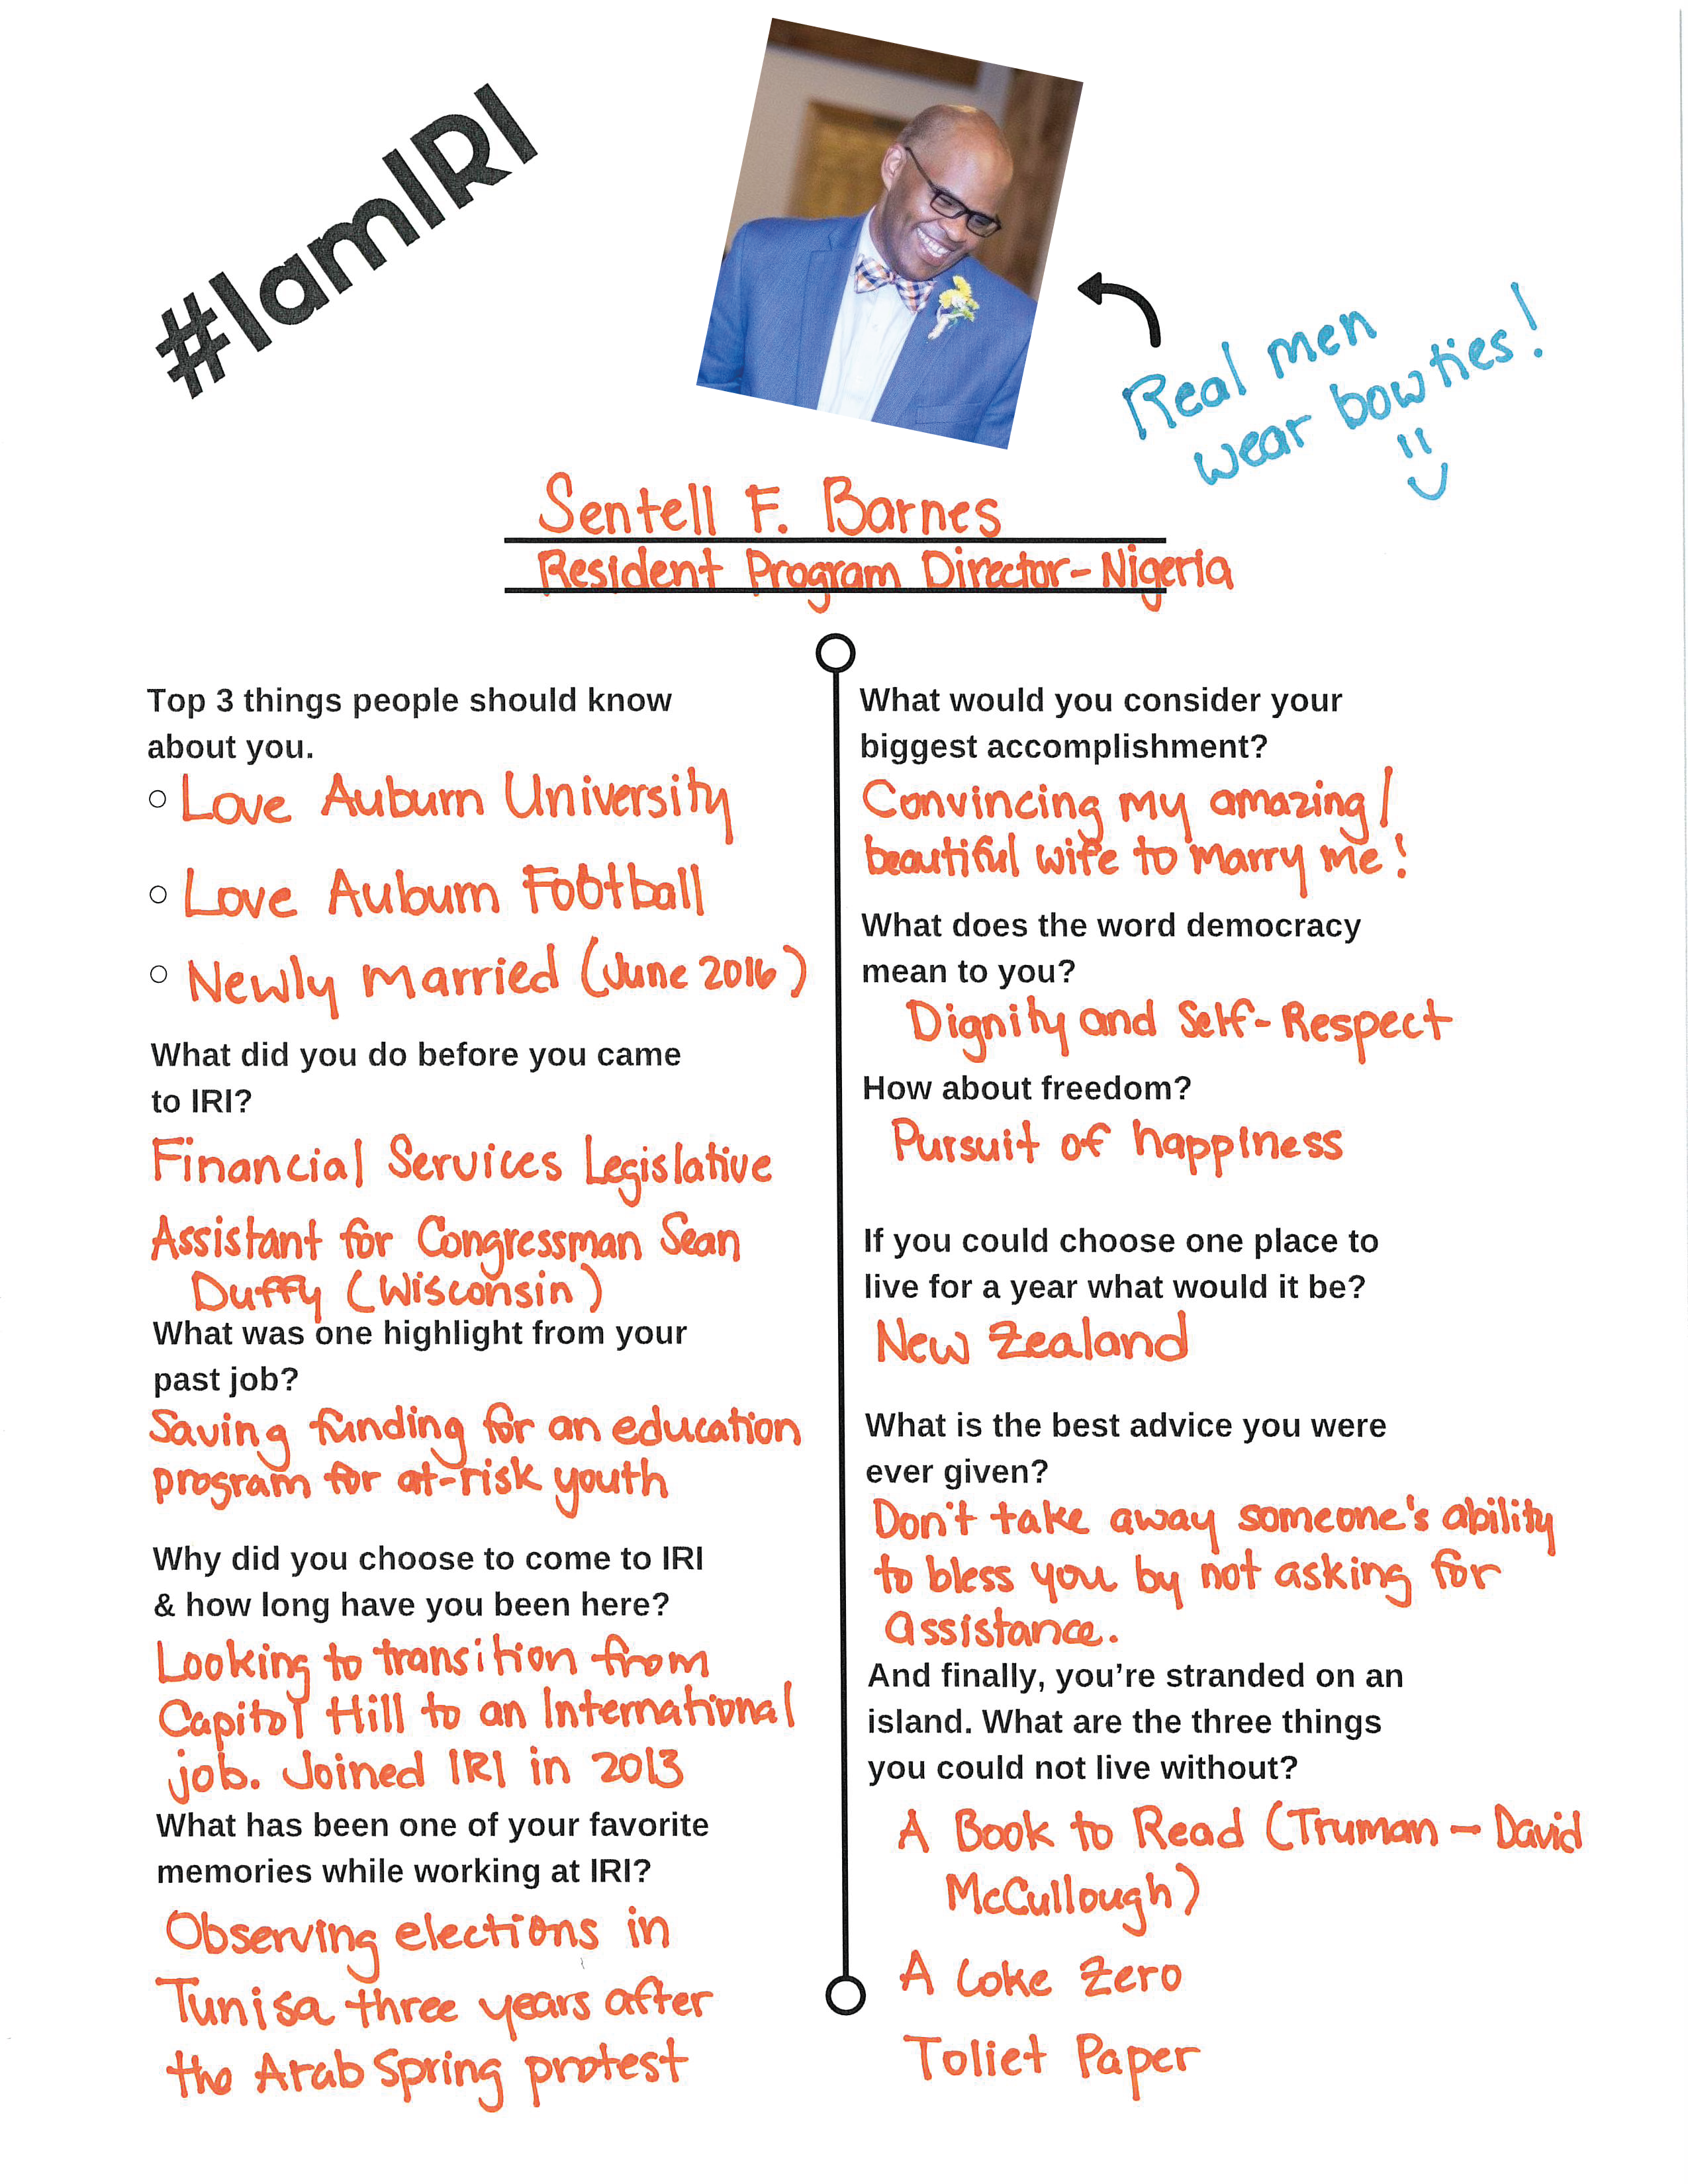 #IamIRI
Real men
wear bowties!
Sentell F. Barnes
Resident Program Director-Nigeria
Top 3 things people should know
about you.
Love Auburn University
Love Auburn Football
Newly married (June 2016)
What did you do before you came
to IRI?
Financial Services Legislative
Assistant for Congressman Sean
Duffy (Wisconsin)
What was one highlight from your
past job?
Saving funding for an education
program for at-risk youth
Why did you choose to come to IRI
& how long have you been here?
Looking to transition from
Capitol Hill to an International
job. Joined IRI in 2013
What has been one of your favorite
memories while working at IRI?
Observing elections in
Tunisa three years after
the Arab Spring protest
What would you consider your
biggest accomplishment?
Convincing my amazing/
beautiful wife to marry me!
What does the word democracy
mean to you?
Dignity and Self-Respect
How about freedom?
Pursuit of happiness
If you could choose one place to
live for a year what would it be?
New Zealand
What is the best advice you were
ever given?
Don't take away someone's ability
to bless you by not asking for
assistance.
And finally, you're stranded on an
island. What are the three things
you could not live without?
A Book to Read (Truman - David
McCullough)
A Coke Zero
Toliet Paper